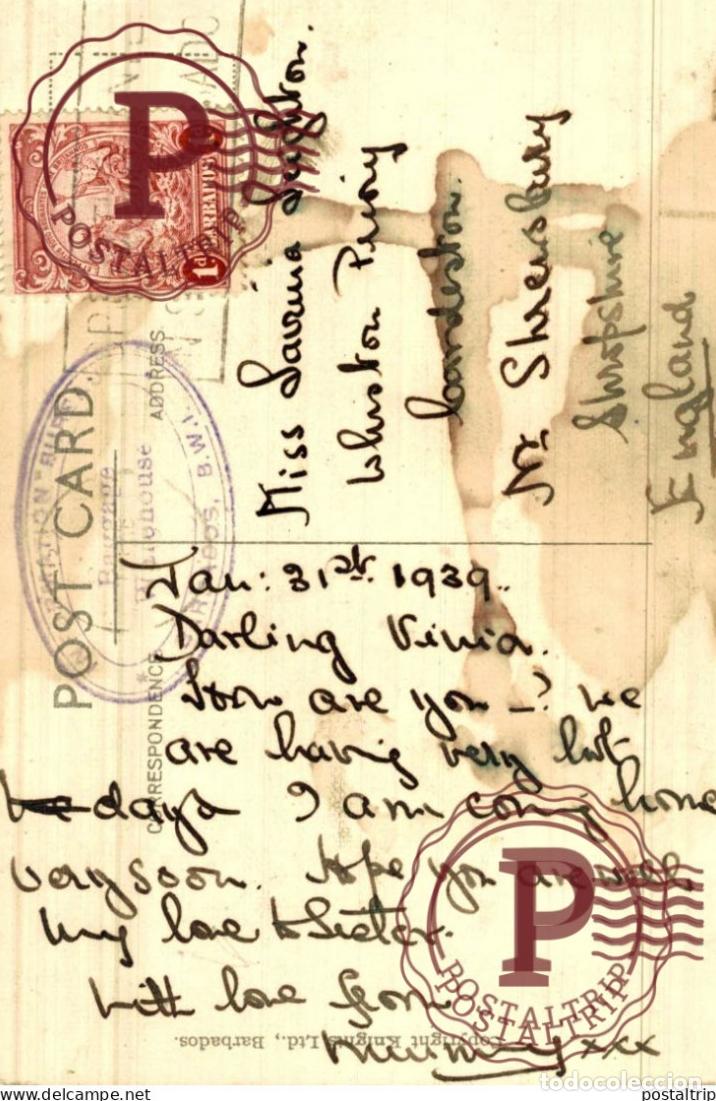 POST CARD
CORRESPONDENCE
ADDRESS
BARBADOS
1d
Baggage
Warehouse
BARBADOS, B.W.I.
Miss Lavinia Leighton.
Whiston Priory
Cardeston.
Nr. Shrewsbury
Shropshire
England
Jan: 31st. 1939.
Darling Vinia.
How are you —? We
are having very hot
days I am coming home
very soon. Hope you are well
My love to Sister.
With love from
Mummy xxx
Copyright Knights Ltd., Barbados.
P
POSTALTRIP
P
POSTALTRIP
POSTALTRIP
todocoleccion
delcampe.net
postaltrip